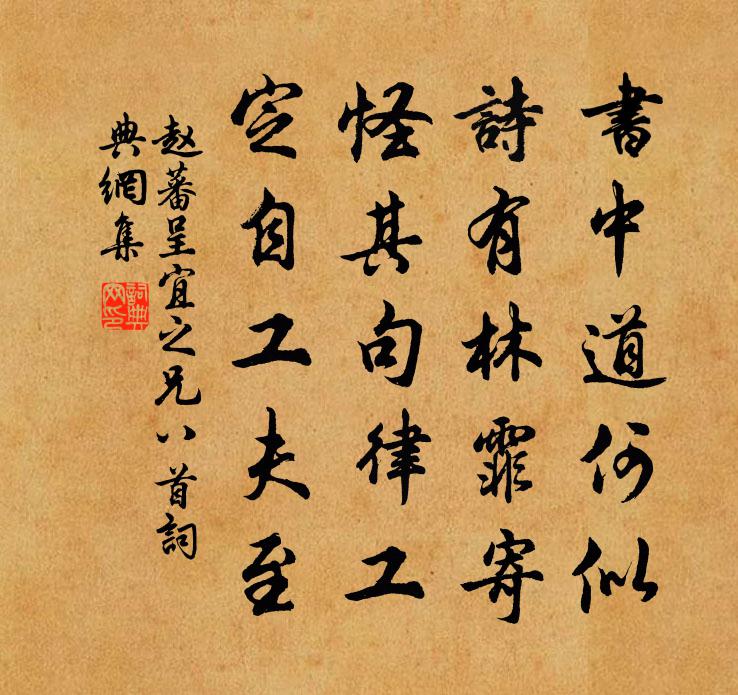 書中道何似
詩有林霏寄
怪其句律工
定自工夫至
赵蕃呈宜之兄八首詞
典網集
詞典網印